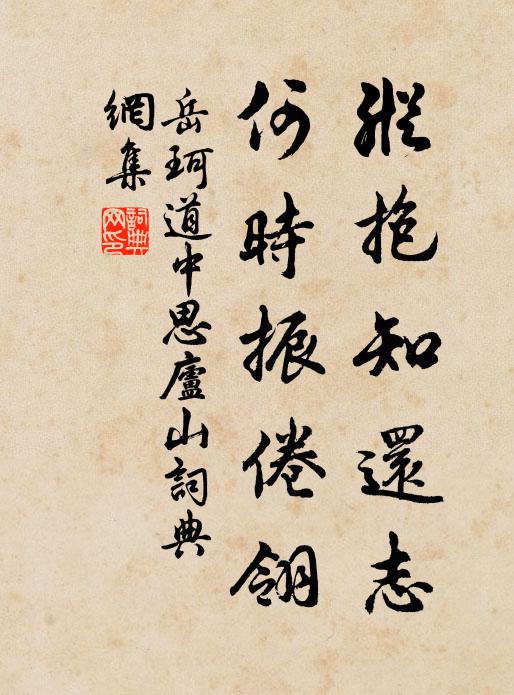 縱抱知還志
何時振倦翎
岳珂道中思廬山詞典
網集
詞典網印